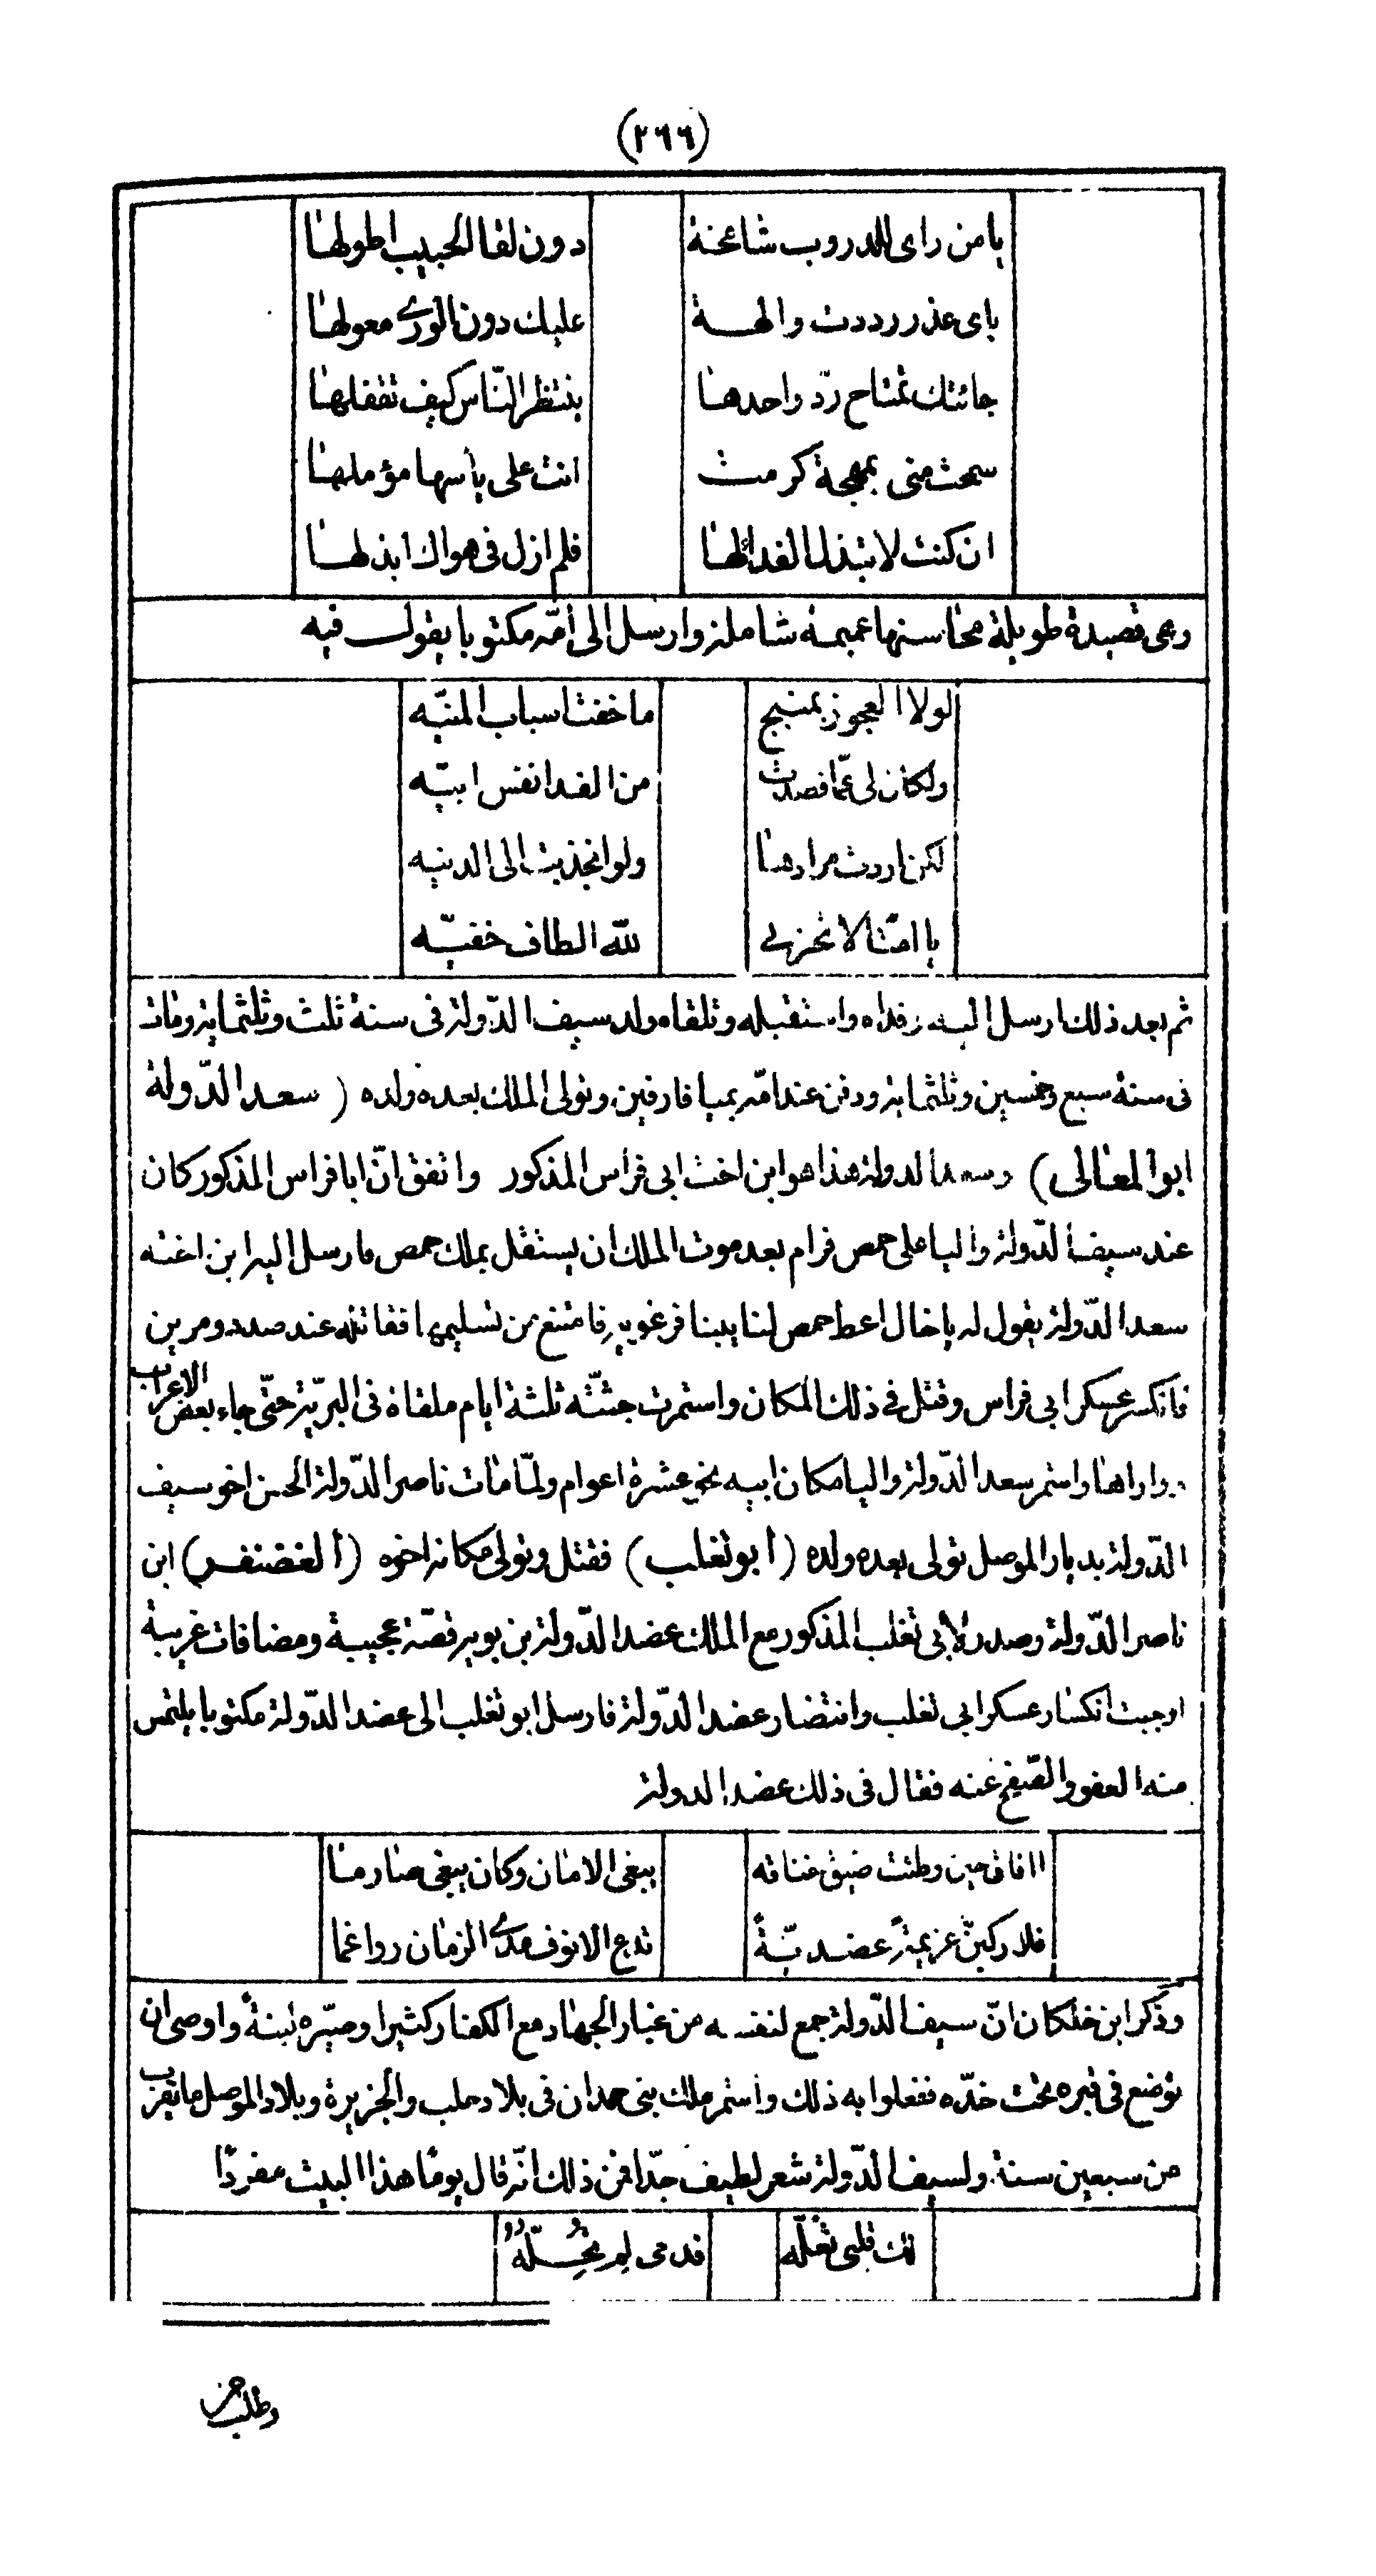 (٢٦٦)
يا من راى للدروب شامخة دون لقا الحبيب اطولها
باى عذر رددت والهة عليك دون الورى معولها
جائتك تمتاح ردّ واحدها ينتظر النّاس كيف تقفلها
سمحت منى بمهجة كرمت انت على يأسها مؤملها
ان كنت لا تبذل الفدا لها فلم ازل فى هواك ابذلها
وهى قصيدة طويلة محاسنها عميمة شاملة وارسل الى امّه مكتوبا يقول فيه
لولا العجوز بمنبج ما خفت اسباب المنيّه
ولكان لى عمّا قصدت من الفدا نفس ابيّه
لكن اردت مرادها ولو انجذبت الى الدنيه
يا امّتا لا تحزنى للّه الطاف خفيّه
ثم بعد ذلك ارسل اليه وفداه واستقبله وتلقاه ولد سيف الدّولة فى سنة ثلث وثلثماية ومات
فى سنة سبع وخمسين وثلثماية ودفن عند امّه بميافارقين وتولى الملك بعده ولده (سعد الدّولة
ابو المعالى) وسعد الدولة هذا هو ابن اخت ابى فراس المذكور واتفق انّ ابا فراس المذكور كان
عند سيف الدّولة واليا على حمص فرام بعد موت الملك ان يستقل بملك حمص فارسل اليه ابن اخته
سعد الدّولة يقول له يا خال اعط حمص لنايبنا فرغويه فامتنع من تسليمها فقاتله عند صدد ومرين
فانكسر عسكر ابى فراس وقتل فى ذلك المكان واستمرت جثّته ثلثة ايام ملقاة فى البريّة حتّى جاء بعض الاعراب
وواراها واستمر سعد الدّولة واليا مكان ابيه نحو عشرة اعوام ولمّا مات ناصر الدّولة الحسن اخو سيف
الدّولة بديار الموصل تولى بعده ولده (ابو تغلب) فقتل وتولى مكانه اخوه (الغضنفر) ابن
ناصر الدّولة وصدر لابى تغلب المذكور مع الملك عضد الدّولة بن بويه قصّة عجيبة ومضافات غريبة
اوجبت انكسار عسكر ابى تغلب وانتضار عضد الدّولة فارسل ابو تغلب الى عضد الدّولة مكتوبا يلتمس
منه العفو والصّفح عنه فقال فى ذلك عضد الدولة
اافاق حين وطئت ضيق خناقه يبغى الامان وكان يبغى صارما
فلاركبنّ عزيمة عضديّةً تدع الانوف مدى الزمان رواغما
وذكر ابن خلكان انّ سيف الدّولة جمع لنفسه من غبار الجهاد مع الكفار كثيرا وصيّره لبنةً واوصى ان
توضع فى قبره تحت خدّه ففعلوا به ذلك واستمر ملك بنى حمدان فى بلاد حلب والجزيرة وبلاد الموصل ما يقرب
من سبعين سنة ولسيف الدّولة شعر لطيف جدّا فمن ذلك انّه قال يومًا هذا البيت مفردًا
لك قلبى تعلّه فدمى لم تحلّه
وطلب من